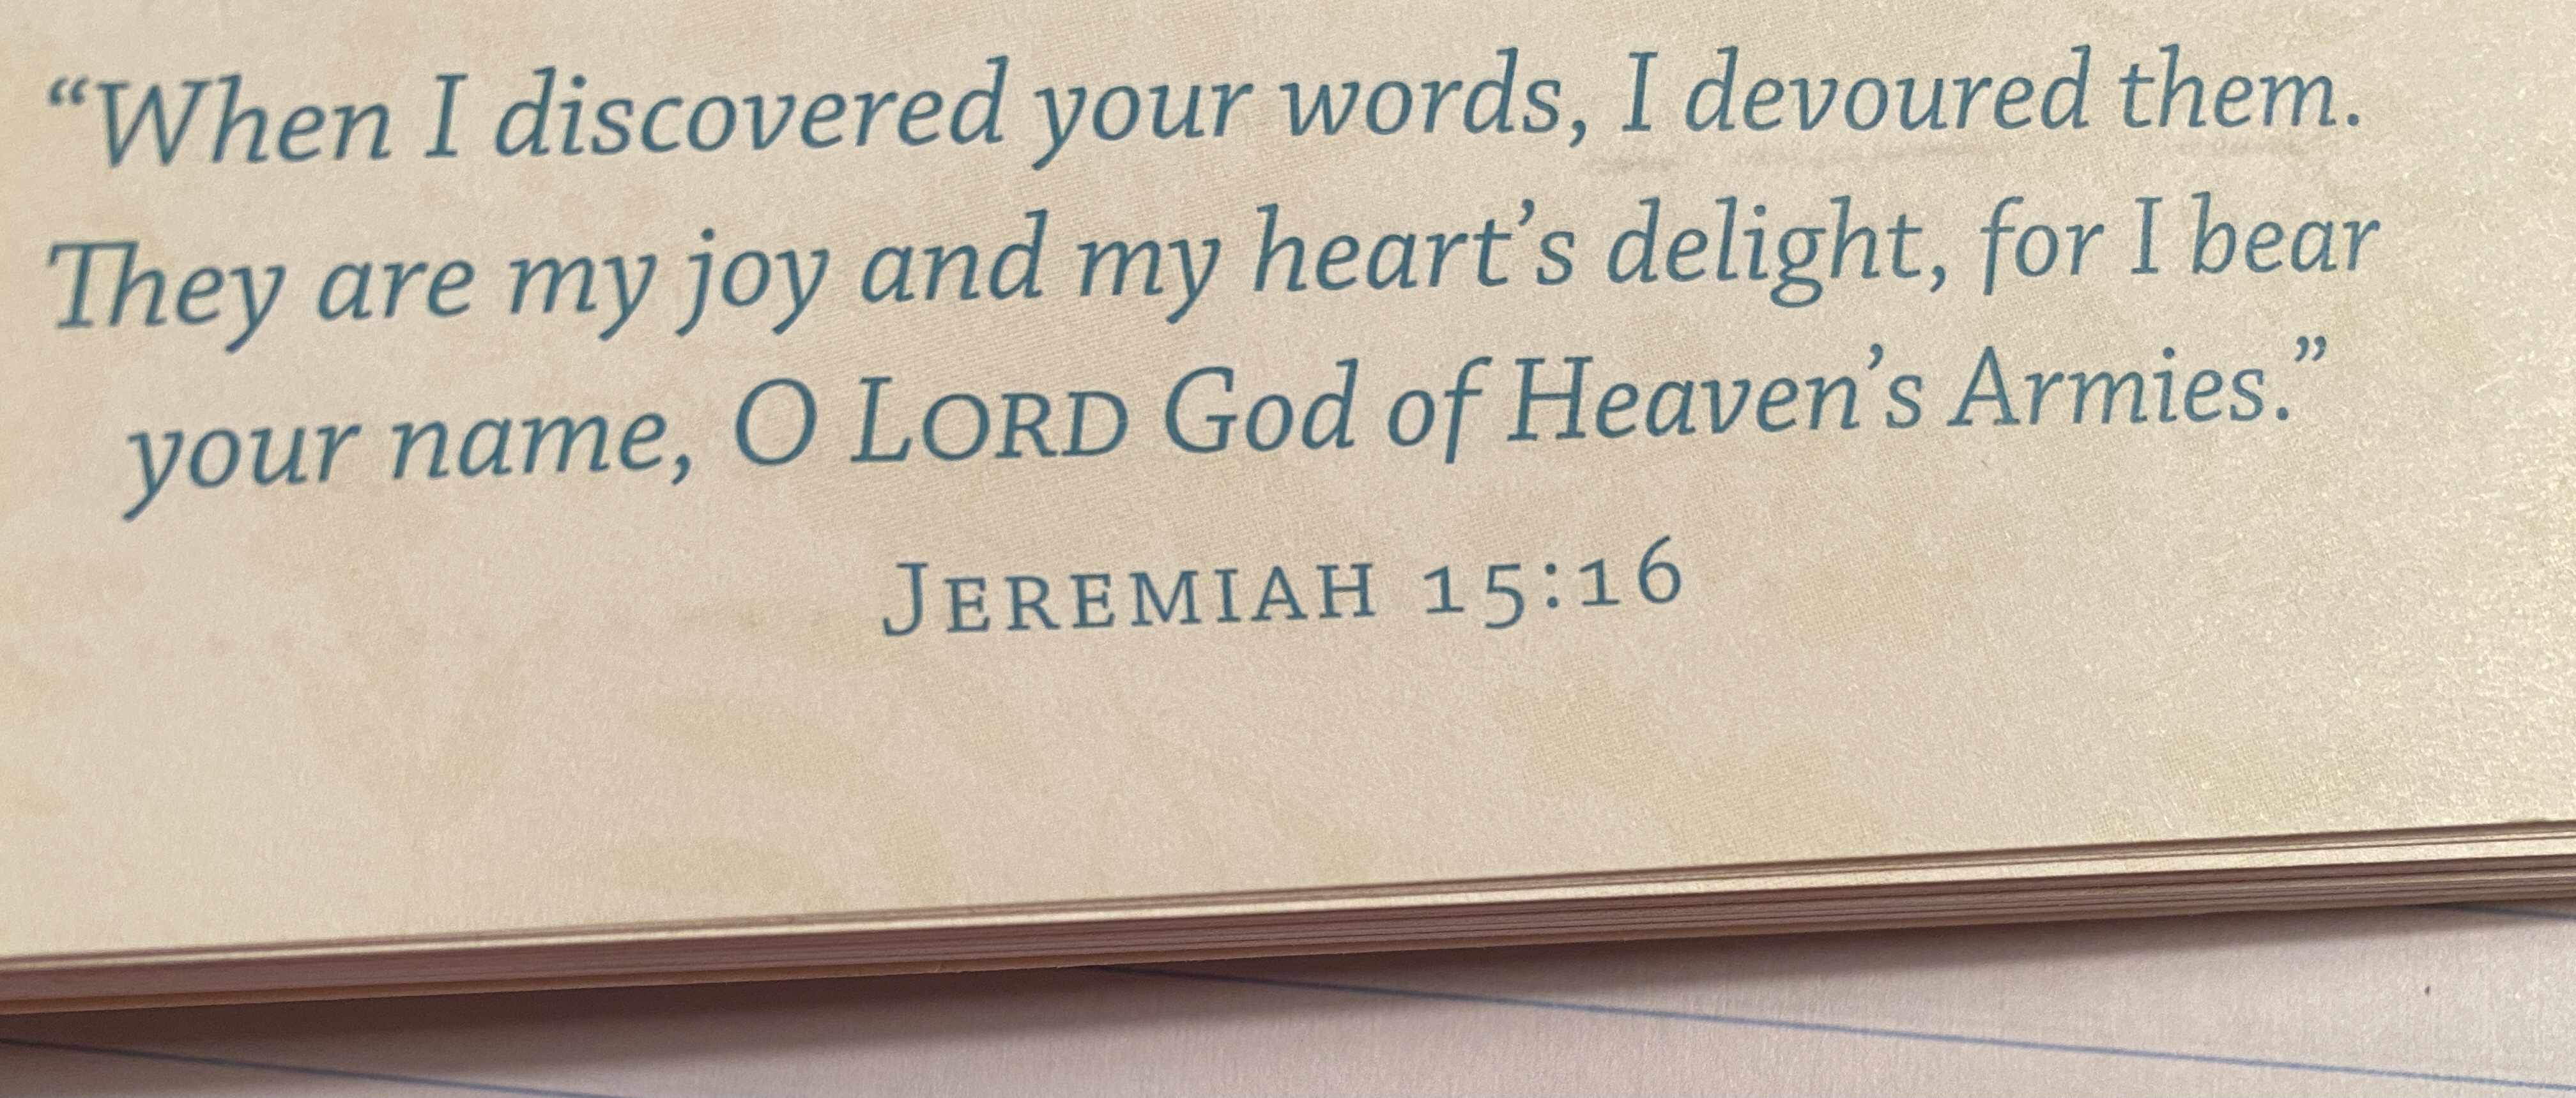 “When I discovered your words, I devoured them.
They are my joy and my heart’s delight, for I bear
your name, O LORD God of Heaven’s Armies.”
JEREMIAH 15:16